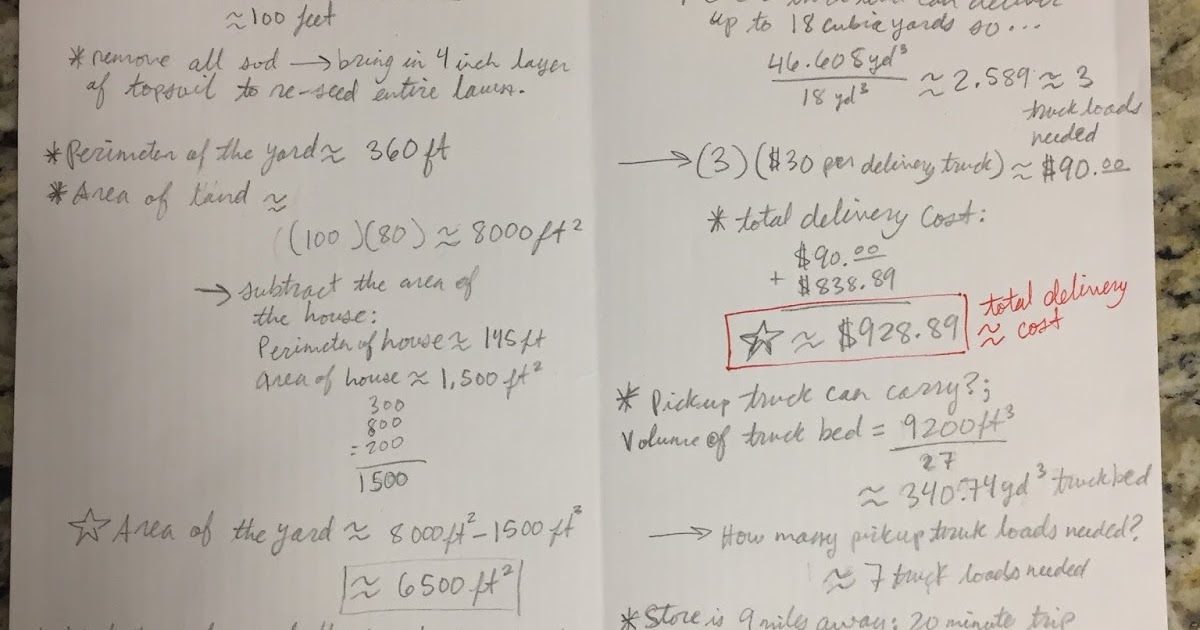 ≈100 feet
*remove all sod → bring in 4 inch layer
of topsoil to re-seed entire lawn.
*Perimeter of the yard ≈ 360 ft
*Area of land ≈
(100)(80) ≈ 8000 ft²
→ subtract the area of
the house:
Perimeter of house ≈ 195 ft
area of house ≈ 1,500 ft²
300
800
=200
1500
☆ Area of the yard ≈ 8000 ft² - 1500 ft²
≈ 6500 ft²
can deliver
up to 18 cubic yards so...
46.608 yd³
18 yd³
≈ 2.589 ≈ 3
truck loads
needed
→ (3)($30 per delivery truck) ≈ $90.00
* total delivery cost:
$90.00
+ $838.89
☆ ≈ $928.89
total delivery
≈ cost
* Pickup truck can carry?;
Volume of truck bed = 9200 ft³
27
≈ 340.74 yd³ truck bed
→ How many pickup truck loads needed?
≈ 7 truck loads needed
*Store is 9 miles away; 20 minute trip